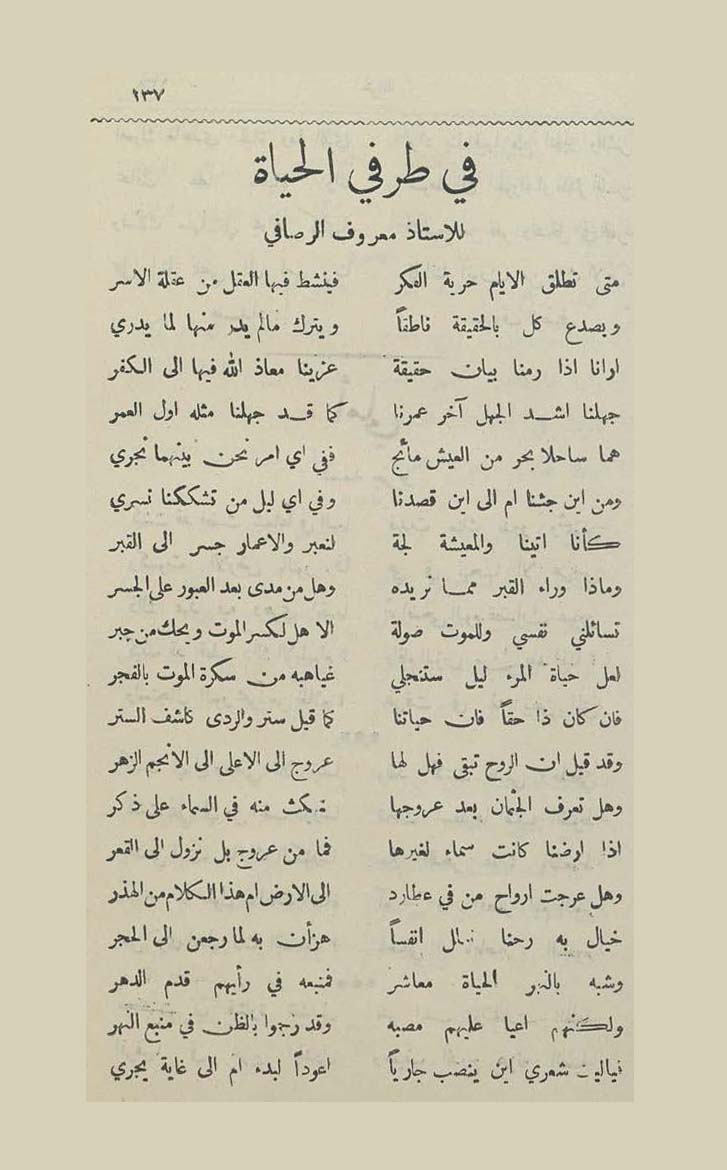 ١٣٧
في طرفي الحياة
للاستاذ معروف الرصافي
متى تطلق الايام حرية الفكر فينشط فيها العقل من عقلة الاسر
ويصدع كل بالحقيقة ناطقاً ويترك مالم يدر منها لما يدري
ارانا اذا رمنا بيان حقيقة عزينا معاذ الله فيها الى الكفر
جهلنا اشد الجهل آخر عمرنا كما قد جهلنا مثله اول العمر
هما ساحلا بحر من العيش مائج ففي اي امر نحن بينهما نجري
ومن اين جئنا ام الى اين قصدنا وفي اي ليل من تشككنا نسري
كأنا اتينا والمعيشة لجة لنعبر والاعمار جسر الى القبر
وماذا وراء القبر مما نريده وهل من مدى بعد العبور على الجسر
تسائلني نفسي وللموت صولة الا هل لكسر الموت ويحك من جبر
لعل حياة المرء ليل ستنجلي غياهبه من سكرة الموت بالفجر
فان كان ذا حقاً فان حياتنا كما قيل ستر والردى كاشف الستر
وقد قيل ان الروح تبقى فهل لها عروج الى الاعلى الى الانجم الزهر
وهل تعرف الجثمان بعد عروجها تمكث منه في السماء على ذكر
اذا ارضنا كانت سماء لغيرها فما من عروج بل نزول الى القعر
وهل عرجت ارواح من في عطارد الى الارض ام هذا الكلام من الهذر
خيال به رحنا نعلل انفساً هزأن به لما رجعن الى الحجر
وشبه بالنهر الحياة معاشر فمنبعه في رأيهم قدم الدهر
ولكنهم اعيا عليهم مصبه وقد رجموا بالظن في منبع النهر
فياليت شعري اين ينضب جارياً اعوداً لبدء ام الى غاية يجري